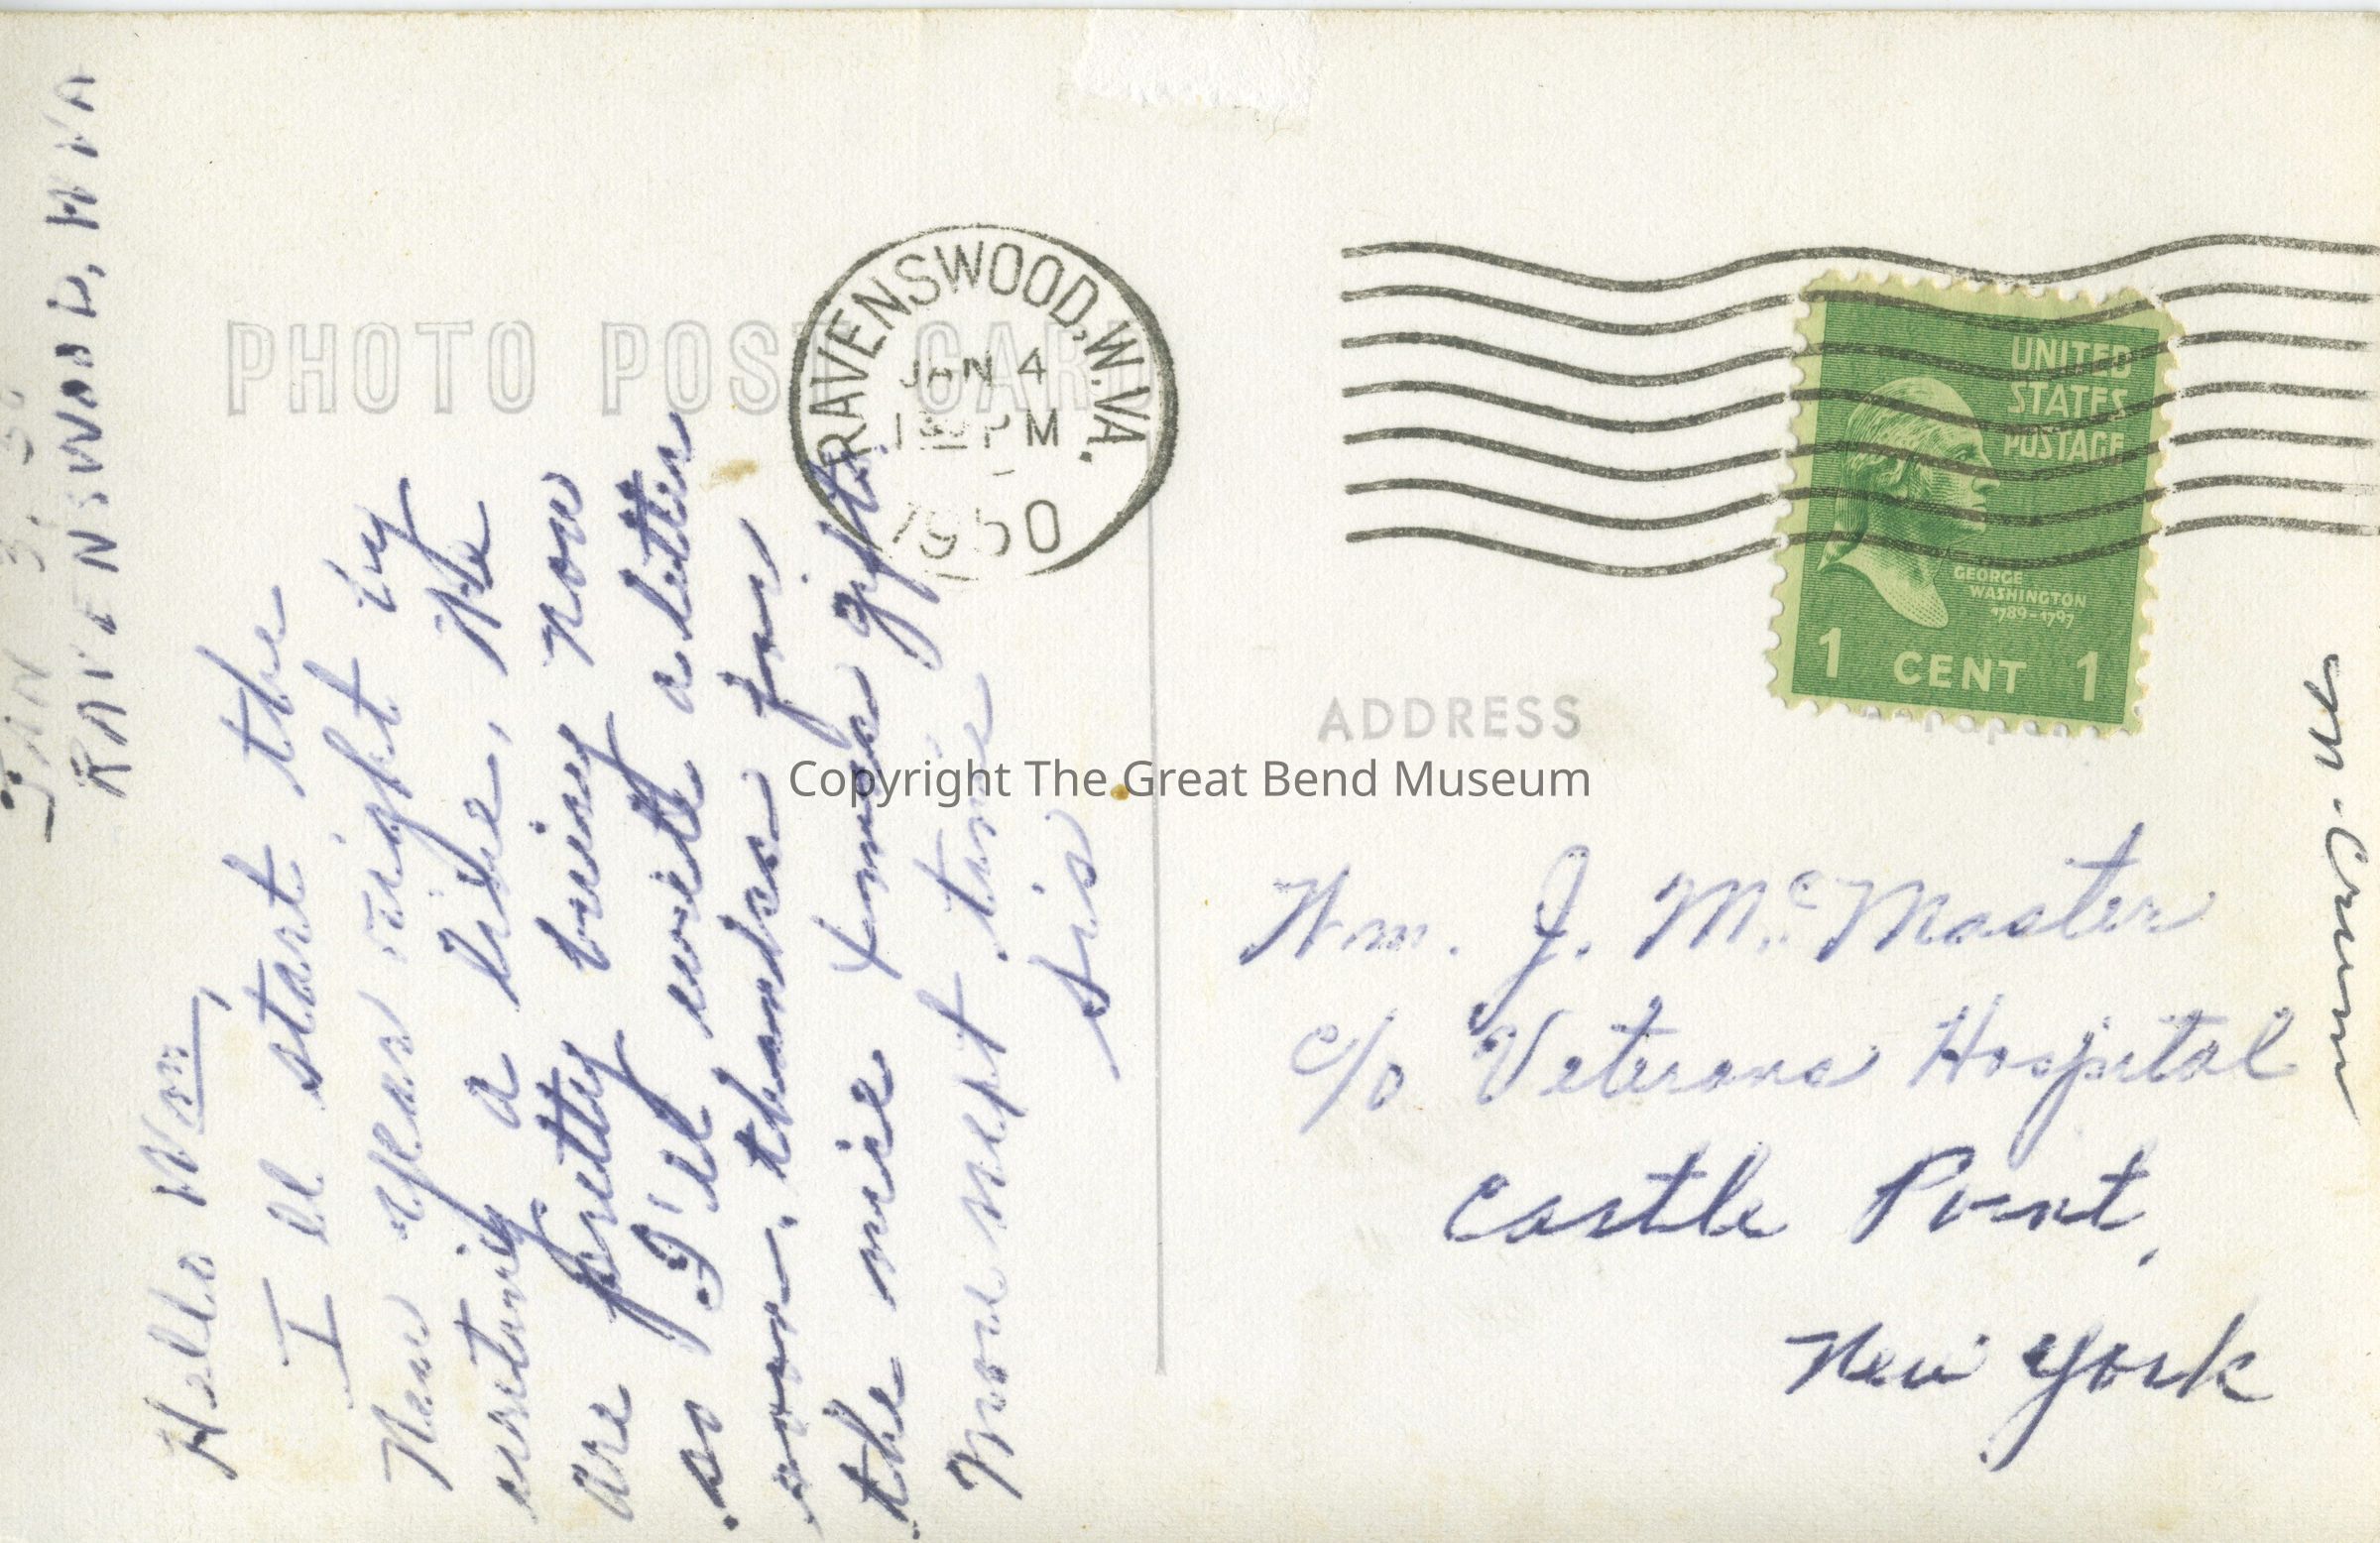 JAN 3 '50
RAVENSWOOD, W VA
Hello Wm,
I ll start the
New year right by
writing a line, We
are pretty busy now
so I'll write a letter
soon. thanks for
the nice Xmas gifts.
More next time
Sis
PHOTO POST CARD
RAVENSWOOD, W.VA.
JAN 4
PM
1950
UNITED
STATES
POSTAGE
GEORGE
WASHINGTON
1789-1797
1 CENT 1
ADDRESS
Copyright The Great Bend Museum
Wm. J. McMaster
c/o Veterans Hospital
Castle Point,
New York